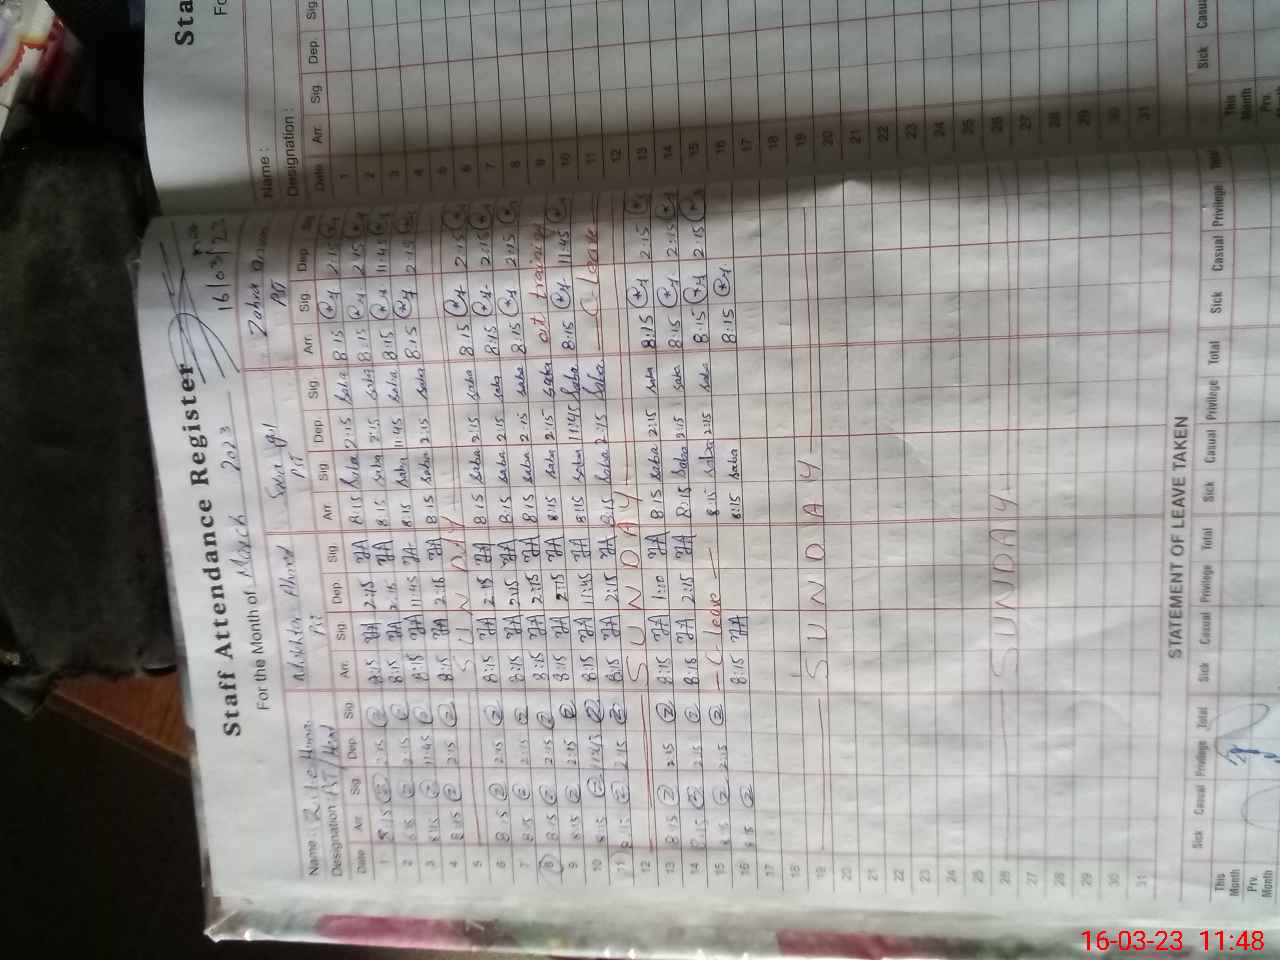 Staff Attendance Register
16/03/23
For the Month of March 2023
Name :
Saba Gul
Zohra
Designation PST/Head
PST
PST
Date Arr. Sig Dep. Sig Arr. Sig Dep. Sig Arr. Sig Dep. Sig Arr. Sig Dep Sig
1 8:15 2:15 8:15 2:15 8:15 Saba 2:15 Saba 8:15 2:15
2 8:15 2:15 8:15 2:15 8:15 Saba 2:15 Saba 8:15 2:15
3 8:15 11:45 8:15 11:45 8:15 Saba 11:45 Saba 8:15 11:45
4 8:15 2:15 8:15 2:15 8:15 Saba 2:15 Saba 8:15 2:15
5 SUNDAY
6 8:15 2:15 8:15 2:15 8:15 Saba 2:15 Saba 8:15 2:15
7 8:15 2:15 8:15 2:15 8:15 Saba 2:15 Saba 8:15 2:15
8 8:15 2:15 8:15 2:15 8:15 Saba 2:15 Saba 8:15 2:15
9 8:15 2:15 8:15 2:15 8:15 Saba 2:15 Saba at training
10 8:15 11:45 8:15 11:45 8:15 Saba 11:45 Saba 8:15 11:45
11 8:15 2:15 8:15 2:15 8:15 Saba 2:15 Saba C leave
12 SUNDAY
13 8:15 2:15 8:15 1:10 8:15 Saba 2:15 Saba 8:15 2:15
14 8:15 2:15 8:15 2:15 8:15 Saba 2:15 Saba 8:15 2:15
15 8:15 2:15 C leave 8:15 Saba 2:15 Saba 8:15 2:15
16 8:15 8:15 8:15 Saba 8:15
17
18
19 SUNDAY
20
21
22
23
24
25
26 SUNDAY
27
28
29
30
31
STATEMENT OF LEAVE TAKEN
Sick Casual Privilege Total Sick Casual Privilege Total Sick Casual Privilege Total Sick Casual Privilege Total
This Month
Prv. Month
Sta
Fo
Name :
Designation :
Date Arr. Sig Dep. Sig
1
2
3
4
5
6
7
8
9
10
11
12
13
14
15
16
17
18
19
20
21
22
23
24
25
26
27
28
29
30
31
Sick Casu
This Month
Prv.
16-03-23 11:48